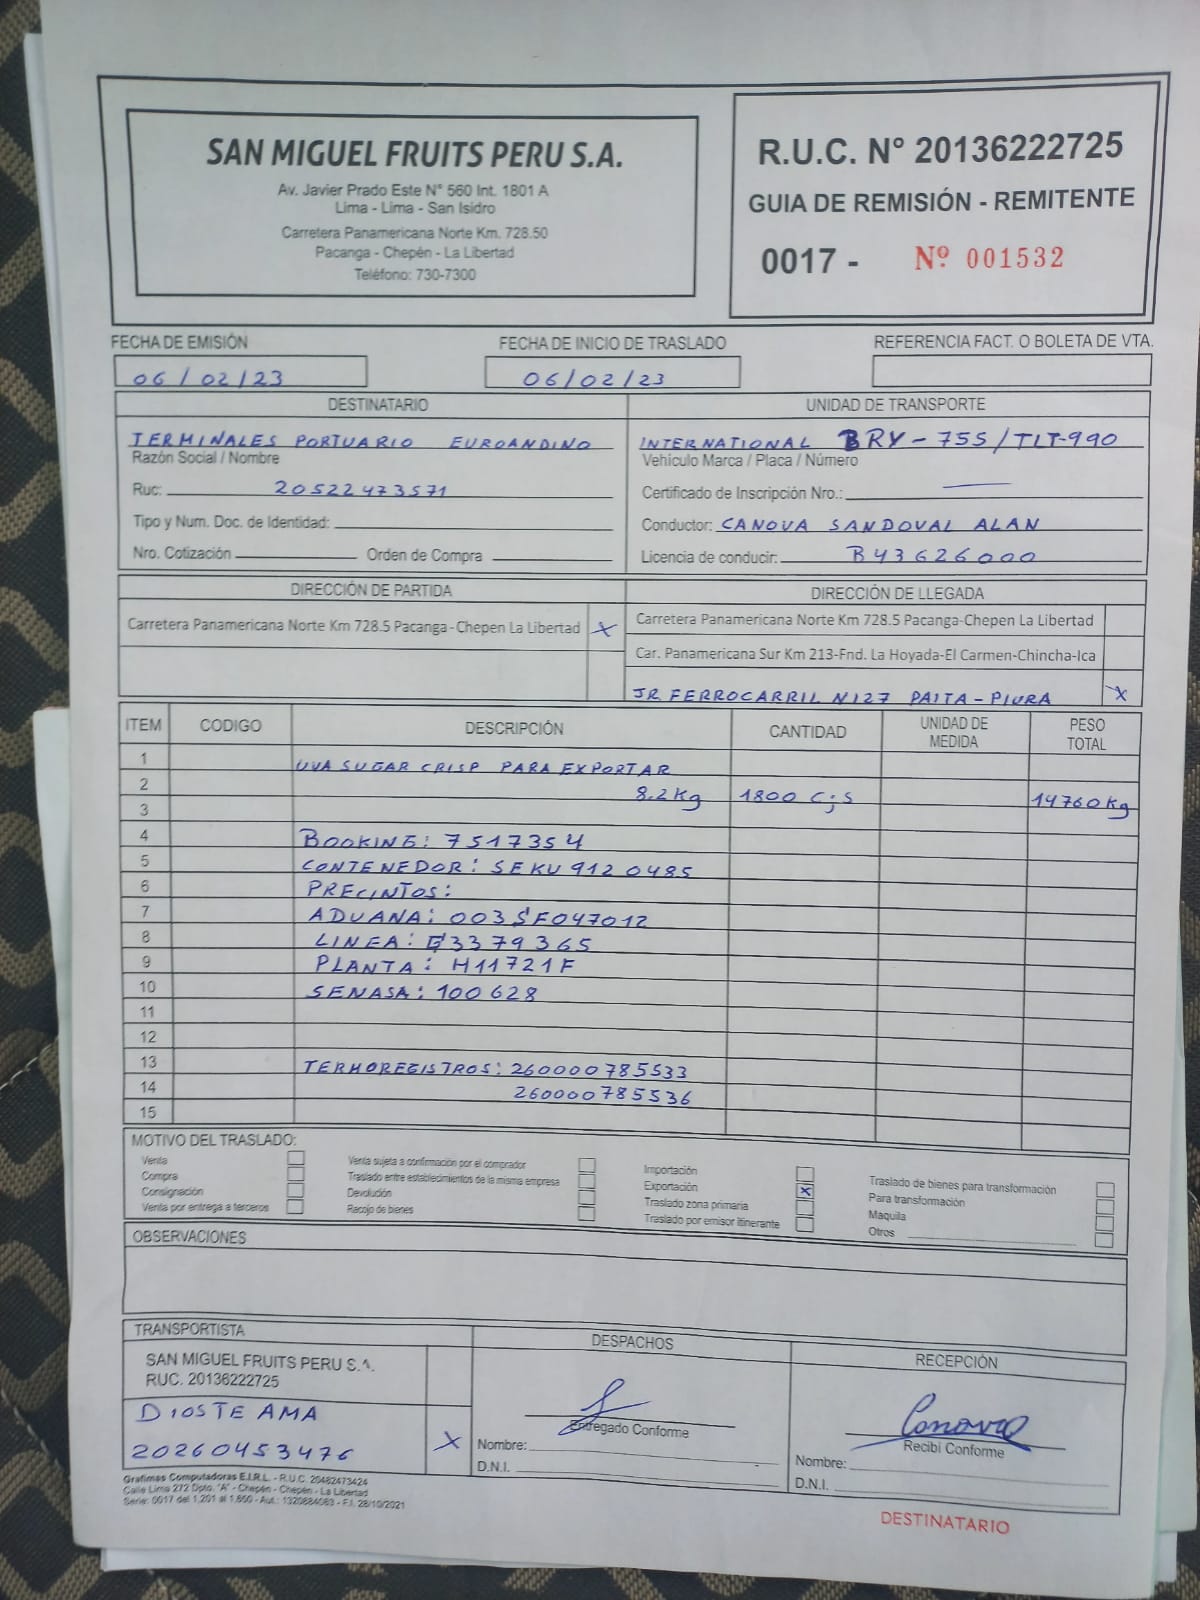 SAN MIGUEL FRUITS PERU S.A.
Av. Javier Prado Este N° 560 Int. 1801 A
Lima - Lima - San Isidro
Carretera Panamericana Norte Km. 728.50
Pacanga - Chepén - La Libertad
Teléfono: 730-7300
R.U.C. N° 20136222725
GUIA DE REMISIÓN - REMITENTE
0017 - Nº 001532
FECHA DE EMISIÓN
06/02/23
FECHA DE INICIO DE TRASLADO
06/02/23
REFERENCIA FACT. O BOLETA DE VTA.
DESTINATARIO
TERMINALES PORTUARIO EUROANDINO
Razón Social / Nombre
Ruc: 20522473571
Tipo y Num. Doc. de Identidad:
Nro. Cotización Orden de Compra
UNIDAD DE TRANSPORTE
INTERNATIONAL BRY-755/TLT-990
Vehículo Marca / Placa / Número
Certificado de Inscripción Nro.: —
Conductor: CANOVA SANDOVAL ALAN
Licencia de conducir: B43626000
DIRECCIÓN DE PARTIDA
Carretera Panamericana Norte Km 728.5 Pacanga-Chepen La Libertad X
DIRECCIÓN DE LLEGADA
Carretera Panamericana Norte Km 728.5 Pacanga-Chepen La Libertad
Car. Panamericana Sur Km 213-Fnd. La Hoyada-El Carmen-Chincha-Ica
JR FERROCARRIL N127 PAITA-PIURA X
ITEM CODIGO DESCRIPCIÓN CANTIDAD UNIDAD DE MEDIDA PESO TOTAL
1 UVA SUGAR CRISP PARA EXPORTAR
2 8.2Kg 1800 Cjs 14760Kg
3
4 BOOKING: 7517354
5 CONTENEDOR: SEKU 912 0485
6 PRECINTOS:
7 ADUANA: 003SF047012
8 LINEA: 3379365
9 PLANTA: H11721F
10 SENASA: 100628
11
12
13 TERMOREGISTROS: 260000785533
14 260000785536
15
MOTIVO DEL TRASLADO:
Venta
Compra
Consignación
Venta por entrega a terceros
Venta sujeta a confirmación por el comprador
Traslado entre establecimientos de la misma empresa
Devolución
Recojo de bienes
Importación
Exportación X
Traslado zona primaria
Traslado por emisor itinerante
Traslado de bienes para transformación
Para transformación
Maquila
Otros
OBSERVACIONES
TRANSPORTISTA
SAN MIGUEL FRUITS PERU S.A.
RUC. 20136222725
DIOS TE AMA
20260453476 X
DESPACHOS
Entregado Conforme
Nombre:
D.N.I.
RECEPCIÓN
Canova
Recibí Conforme
Nombre:
D.N.I.
Grafimas Computadoras E.I.R.L. - R.U.C. 20482473424
Calle Lima 272 Dpto. "A" - Chepén - Chepén - La Libertad
Serie: 0017 del 1,201 al 1,600 - Aut.: 1320884083 - F.I. 28/10/2021
DESTINATARIO